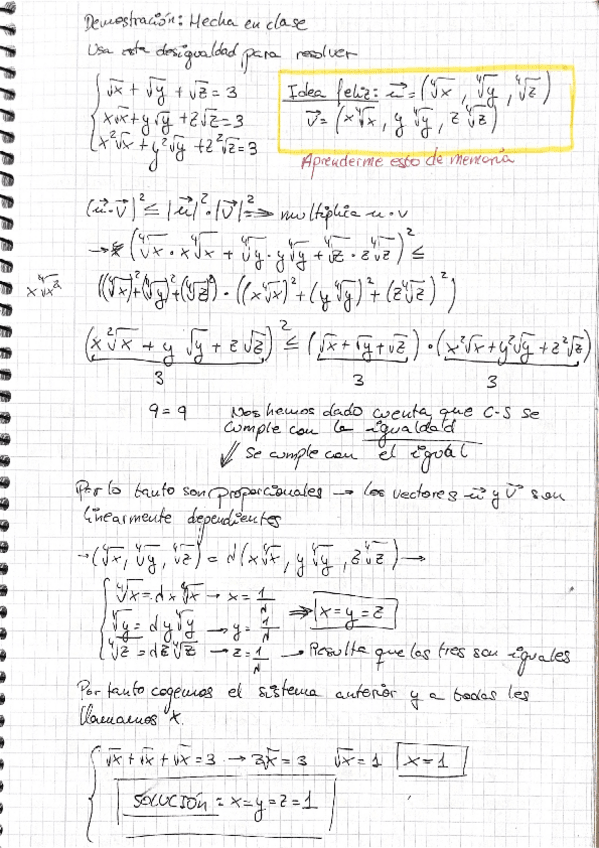 Demostración: Hecha en clase
Usa esta desigualdad para resolver
√x + √y + √z = 3
x√x + y√y + z√z = 3
x²√x + y²√y + z²√z = 3
Idea feliz: u⃗ = (⁴√x, ⁴√y, ⁴√z)
v⃗ = (x⁴√x, y⁴√y, z⁴√z)
Aprenderme esto de memoria
(u⃗·v⃗)² ≤ |u⃗|²·|v⃗|² ⇒ multiplica u·v
→ (⁴√x · x⁴√x + ⁴√y · y⁴√y + ⁴√z · z⁴√z)² ≤
x⁴√x²
((⁴√x)² + (⁴√y)² + (⁴√z)²) · ((x⁴√x)² + (y⁴√y)² + (z⁴√z)²)
(x²√x + y√y + z√z)² ≤ (√x + √y + √z) · (x²√x + y²√y + z²√z)
3 3 3
9 = 9 Nos hemos dado cuenta que C-S se
cumple con la igualdad
Se cumple con el igual
Por lo tanto son proporcionales → los vectores u⃗ y v⃗ son
linearmente dependientes
→ (⁴√x, ⁴√y, ⁴√z) = d(x⁴√x, y⁴√y, z⁴√z) →
⁴√x = d x⁴√x → x = 1/
⁴√y = d y⁴√y → y = 1/ ⇒ x = y = z
⁴√z = d z⁴√z → z = 1/ → Resulta que las tres son iguales
Por tanto cogemos el sistema anterior y a todas les
llamamos X.
√x + √x + √x = 3 → 3√x = 3 √x = 1 x = 1
SOLUCIÓN = x = y = z = 1